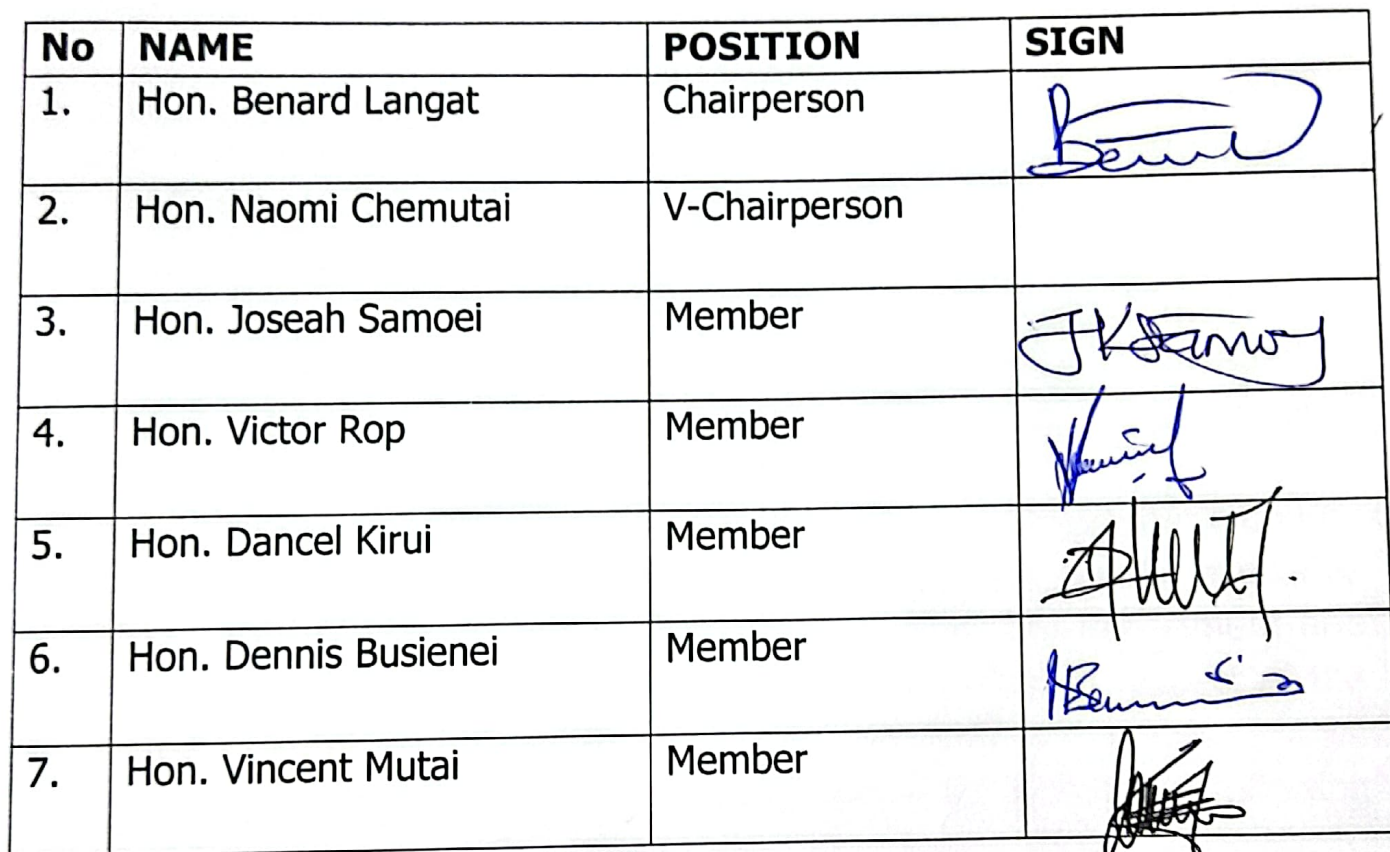 No NAME POSITION SIGN
1. Hon. Benard Langat Chairperson
2. Hon. Naomi Chemutai V-Chairperson
3. Hon. Joseah Samoei Member
4. Hon. Victor Rop Member
5. Hon. Dancel Kirui Member
6. Hon. Dennis Busienei Member
7. Hon. Vincent Mutai Member